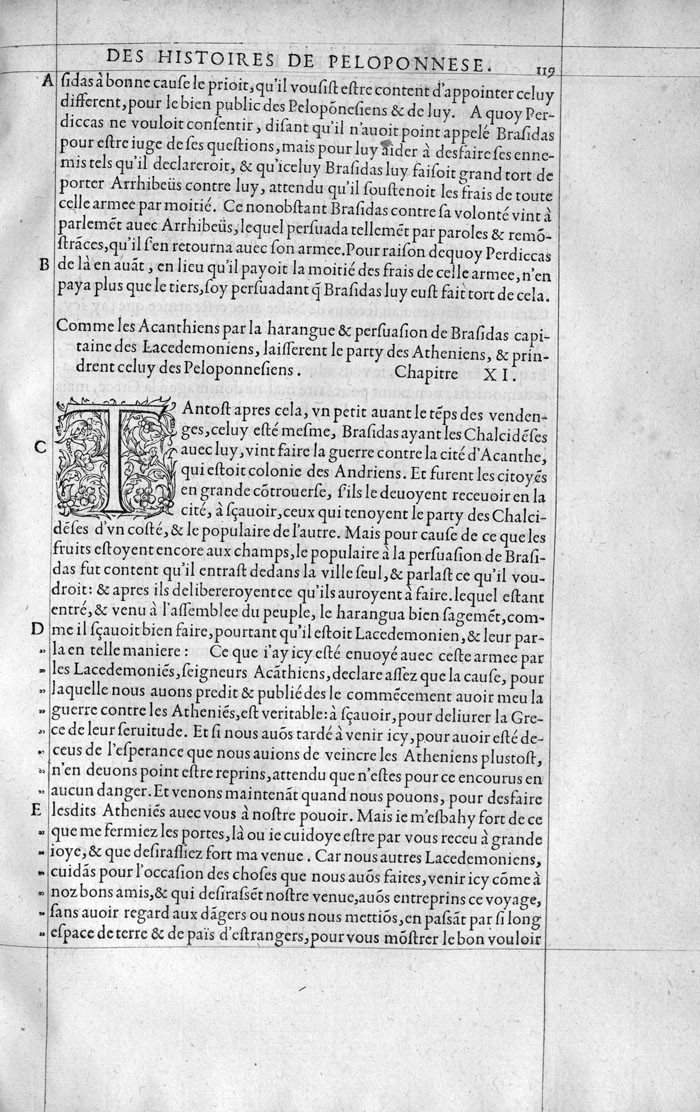 DES HISTOIRES DE PELOPONNESE. 119
A ſidas à bonne cauſe le prioit, qu'il vouſiſt eſtre content d'appointer celuy
different, pour le bien public des Pelopõneſiens & de luy. A quoy Per-
diccas ne vouloit conſentir, diſant qu'il n'auoit point appelé Braſidas
pour eſtre iuge de ſes queſtions, mais pour luy aider à desfaire ſes enne-
mis tels qu'il declareroit, & qu'iceluy Braſidas luy faiſoit grand tort de
porter Arrhibeüs contre luy, attendu qu'il ſouſtenoit les frais de toute
celle armee par moitié. Ce nonobſtant Braſidas contre ſa volonté vint à
parlemẽt auec Arrhibeüs, lequel perſuada tellemẽt par paroles & remõ-
ſtrãces, qu'il ſ'en retourna auec ſon armee. Pour raiſon dequoy Perdiccas
B de là en auãt, en lieu qu'il payoit la moitié des frais de celle armee, n'en
paya plus que le tiers, ſoy perſuadant q̃ Braſidas luy euſt fait tort de cela.
Comme les Acanthiens par la harangue & perſuaſion de Braſidas capi-
taine des Lacedemoniens, laiſſerent le party des Atheniens, & prin-
drent celuy des Peloponneſiens. Chapitre XI.
TAntoſt apres cela, vn petit auant le tẽps des venden-
ges, celuy eſté meſme, Braſidas ayant les Chalcidẽſes
C auec luy, vint faire la guerre contre la cité d'Acanthe,
qui eſtoit colonie des Andriens. Et furent les citoyẽs
en grande cõtrouerſe, ſ'ils le deuoyent receuoir en la
cité, à ſçauoir, ceux qui tenoyent le party des Chalci-
dẽſes d'vn coſté, & le populaire de l'autre. Mais pour cauſe de ce que les
fruits eſtoyent encore aux champs, le populaire à la perſuaſion de Braſi-
das fut content qu'il entraſt dedans la ville ſeul, & parlaſt ce qu'il vou-
droit: & apres ils delibereroyent ce qu'ils auroyent à faire. lequel eſtant
entré, & venu à l'aſſemblee du peuple, le harangua bien ſagemẽt, com-
D me il ſçauoit bien faire, pourtant qu'il eſtoit Lacedemonien, & leur par-
„ la en telle maniere: Ce que i'ay icy eſté enuoyé auec ceſte armee par
„ les Lacedemoniẽs, ſeigneurs Acãthiens, declare aſſez que la cauſe, pour
„ laquelle nous auons predit & publié dés le commẽcement auoir meu la
„ guerre contre les Atheniẽs, eſt veritable: à ſçauoir, pour deliurer la Gre-
„ ce de leur ſeruitude. Et ſi nous auõs tardé à venir icy, pour auoir eſté de-
„ ceus de l'eſperance que nous auions de veincre les Atheniens pluſtoſt,
„ n'en deuons point eſtre reprins, attendu que n'eſtes pour ce encourus en
„ aucun danger. Et venons maintenãt quand nous pouons, pour desfaire
E lesdits Atheniẽs auec vous à noſtre pouoir. Mais ie m'eſbahy fort de ce
„ que me fermiez les portes, là ou ie cuidoye eſtre par vous receu à grande
„ ioye, & que deſiraſſiez fort ma venue. Car nous autres Lacedemoniens,
„ cuidãs pour l'occaſion des choſes que nous auõs faites, venir icy cõme à
„ noz bons amis, & qui deſiraſſẽt noſtre venue, auõs entreprins ce voyage,
„ ſans auoir regard aux dãgers ou nous nous mettiõs, en paſſãt par ſi long
„ eſpace de terre & de païs d'eſtrangers, pour vous mõſtrer le bon vouloir